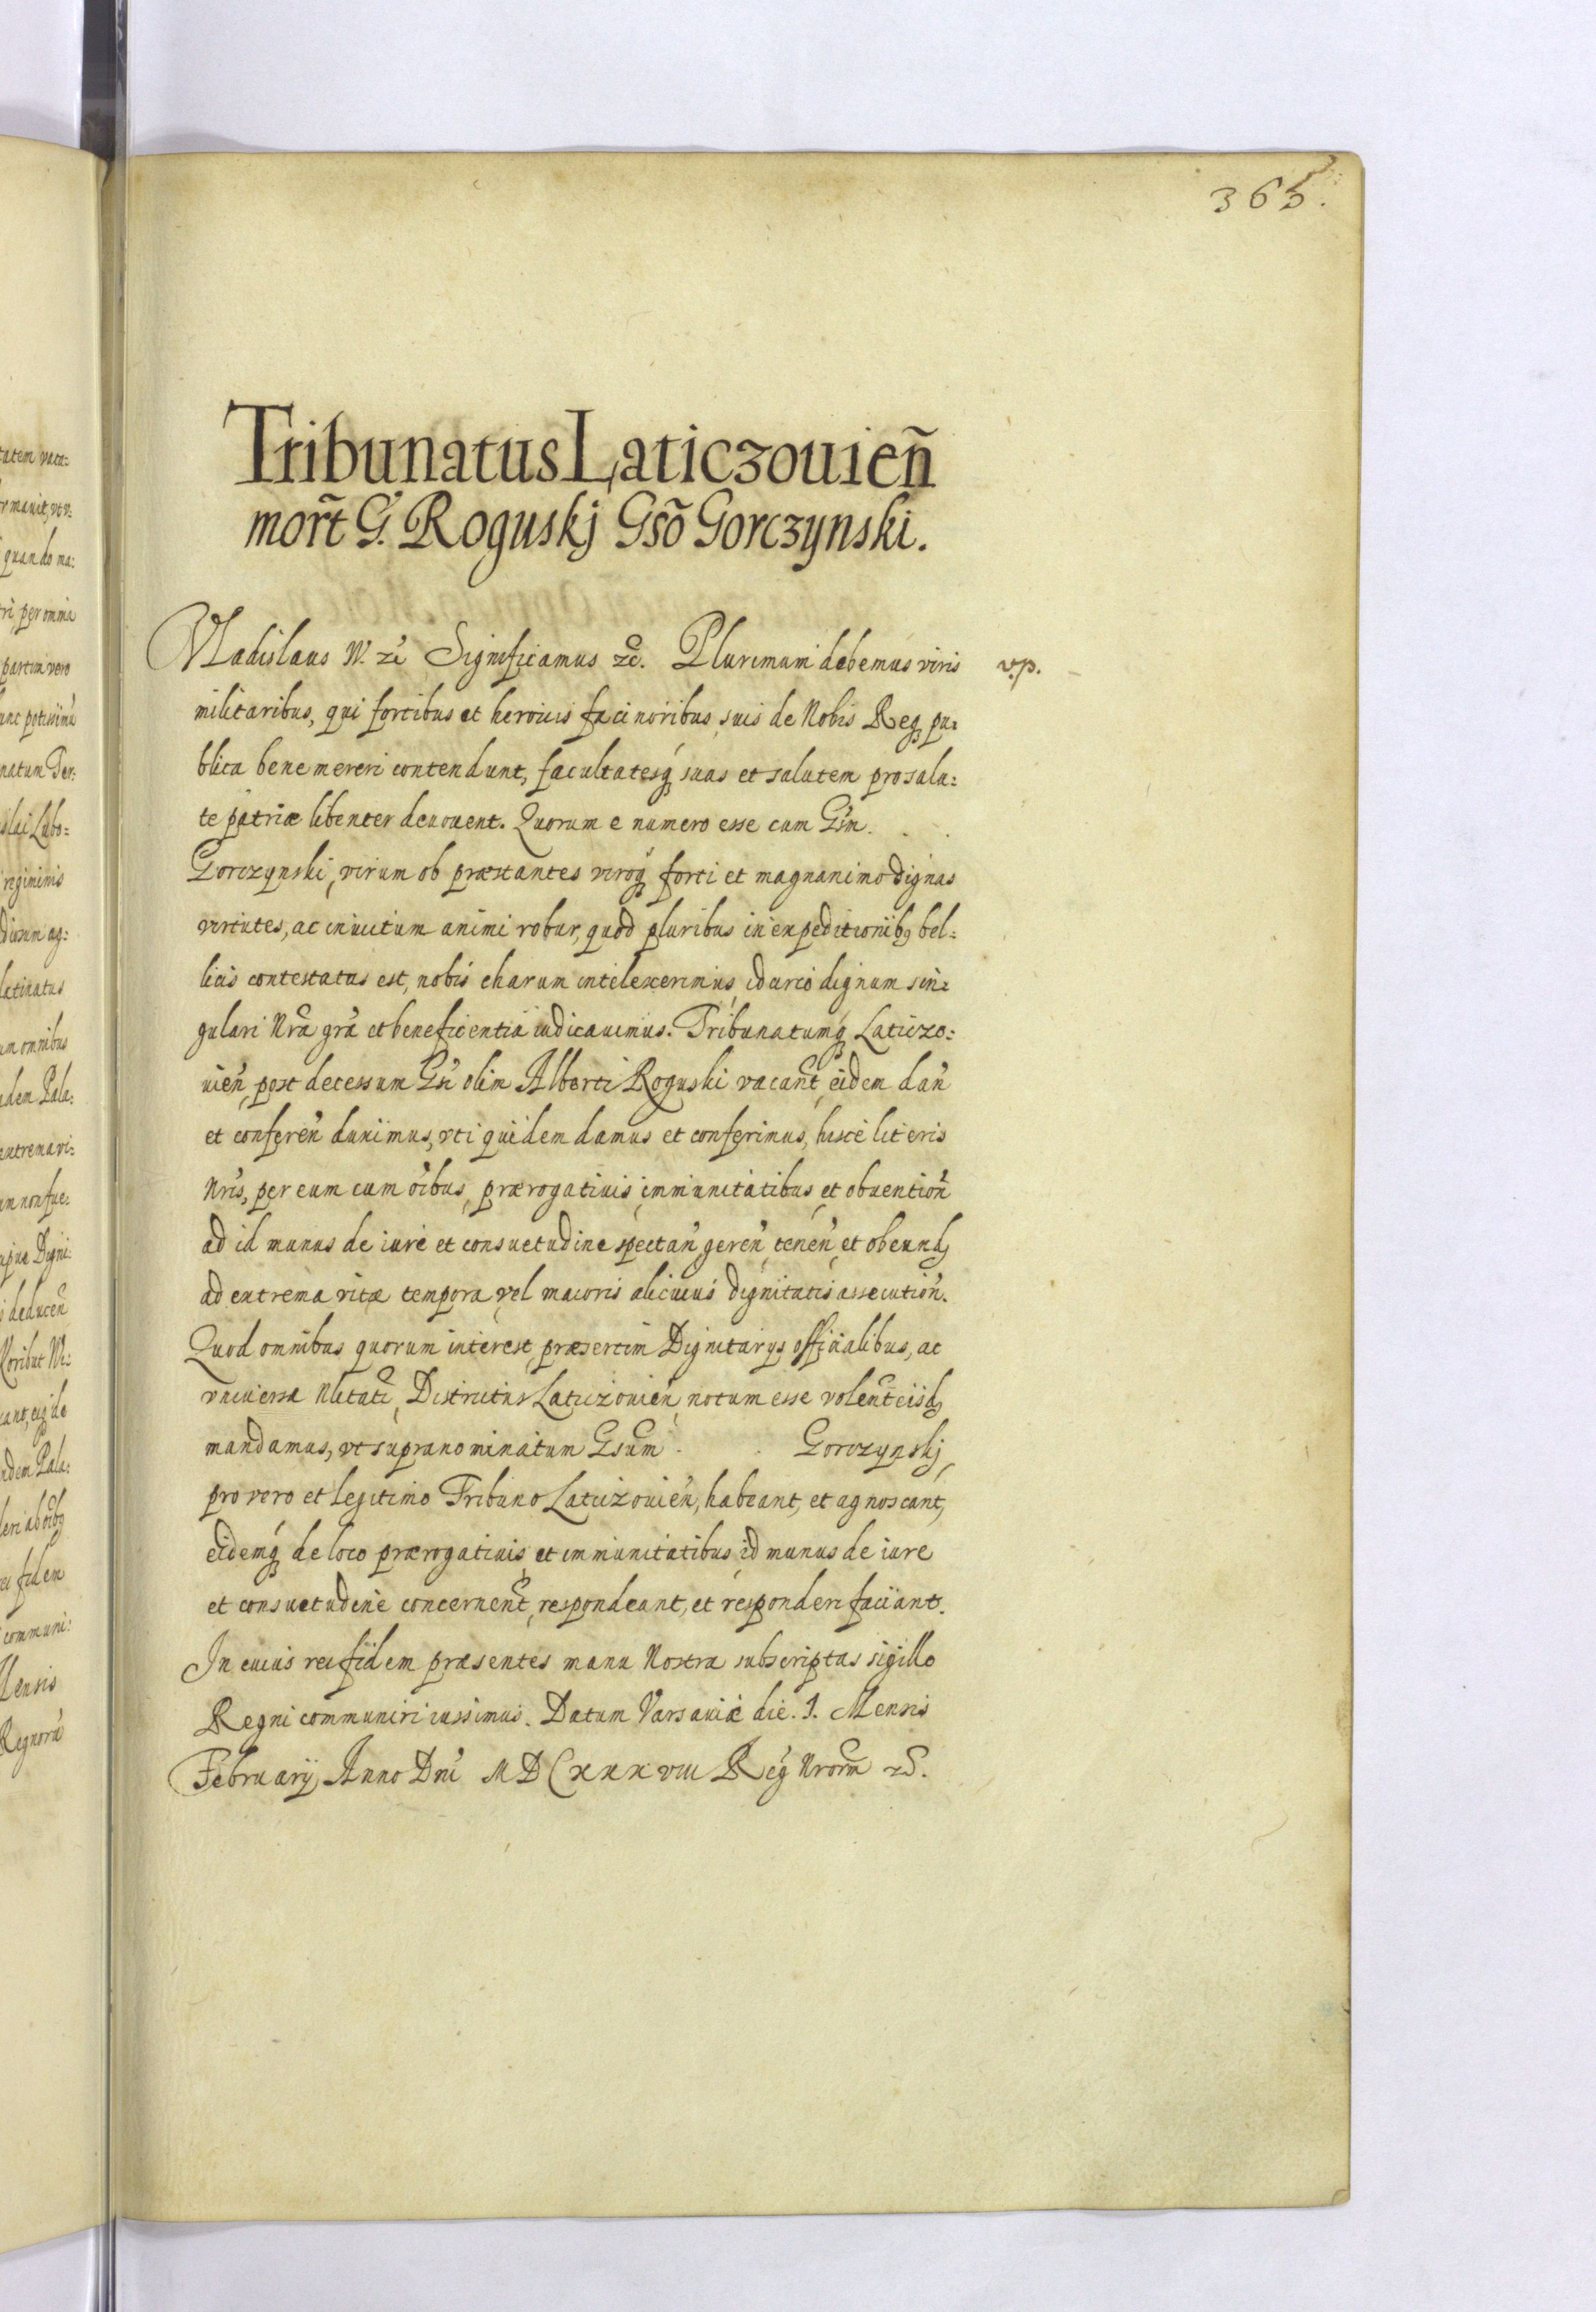 365.
Tribunatus Laticzouień
mort̃ G. Roguskj Gsõ Gorczynski.
Vladislaus IV. zc̃ Significamus zc̃. Plurimum debemus viris v.p.
militaribus, qui fortibus et heroicis facinoribus suis de Nobis Reqꝫ pu:
blica bene mereri contendunt, facultatesqꝫ suas et salutem pro salu:
te patriæ libenter deuouent. Quorum e numero esse cum Gsm̃
Gorczynski, virum ob præstantes viroqꝫ forti et magnanimo dignas
virtutes, ac inuictum animi robur, quod pluribus in expeditionibꝫ bel:
licis contestatus est, nobis charum intelexerimus, idcirco dignum sin:
gulari Nr̃a gr̃a et beneficentia iudicauimus. Tribunatumqꝫ Laticzo:
uień, post decessum Gsi olim Alberti Roguski vacan̄t, eidem dań
et confereń duximus, vti quidem damus et conferimus, hisce literis
Nr̃is, per eum cum oĩbus, prærogatiuis, immunitatibus, et obuentioń
ad id munus de iure et consuetudine spectań, gereń, teneń, et obeundꝫ
ad extrema vitæ tempora, vel maioris alicuius dignitatis assecutioń.
Quod omnibus quorum interest, præsertim Dignitarys officialibus, ac
vniuersæ Nlitati, Districtus Laticzouień, notum esse volen̄t eisdꝫ
mandamus, vt supranominatum Gsum̃ Gorczynskj,
pro vero et legitimo Tribuno Laticzouień, habeant, et agnoscant,
eidemqꝫ de loco prærogatiuis, et immunitatibus, id munus de iure
et consuetudine concernen̄t, respondeant, et responderi faciant.
In cuius rei fidem præsentes manu Nostra subscriptas sigillo
Regni communiri iussimus. Datum Varsauiæ die. 1. Mensis
February, Anno Dnĩ MDCXXXVIII Reg̃ Nrorm̃ zc̃.